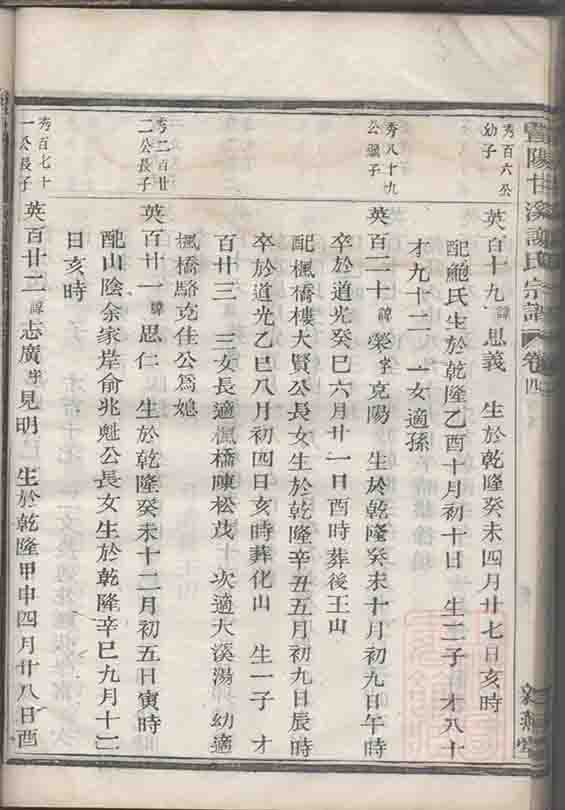 暨陽甘溪謝氏宗譜 卷四
秀百六公
幼子
英百十九諱思義 生於乾隆癸未四月廿七日亥時
配鮑氏生於乾隆乙酉十月初十日 生二子 才八十
才九十二 一女適孫
秀八十九
公繼子
英百二十諱榮字克陽 生於乾隆癸未十月初九日午時
卒於道光癸巳六月廿一日酉時葬後王山
配楓橋樓大賢公長女生於乾隆辛丑五月初九日辰時
卒於道光乙巳八月初四日亥時葬化山 生一子 才
百廿三 三女長適楓橋陳松茂 次適大溪湯 幼適
楓橋駱克佳公爲媳
秀二百廿
二公長子
英百廿一諱思仁 生於乾隆癸未十二月初五日寅時
配山陰余家岸俞兆魁公長女生於乾隆辛巳九月十二
日亥時
秀百七十
一公長子
英百廿二諱志廣字見明 生於乾隆甲申四月廿八日酉